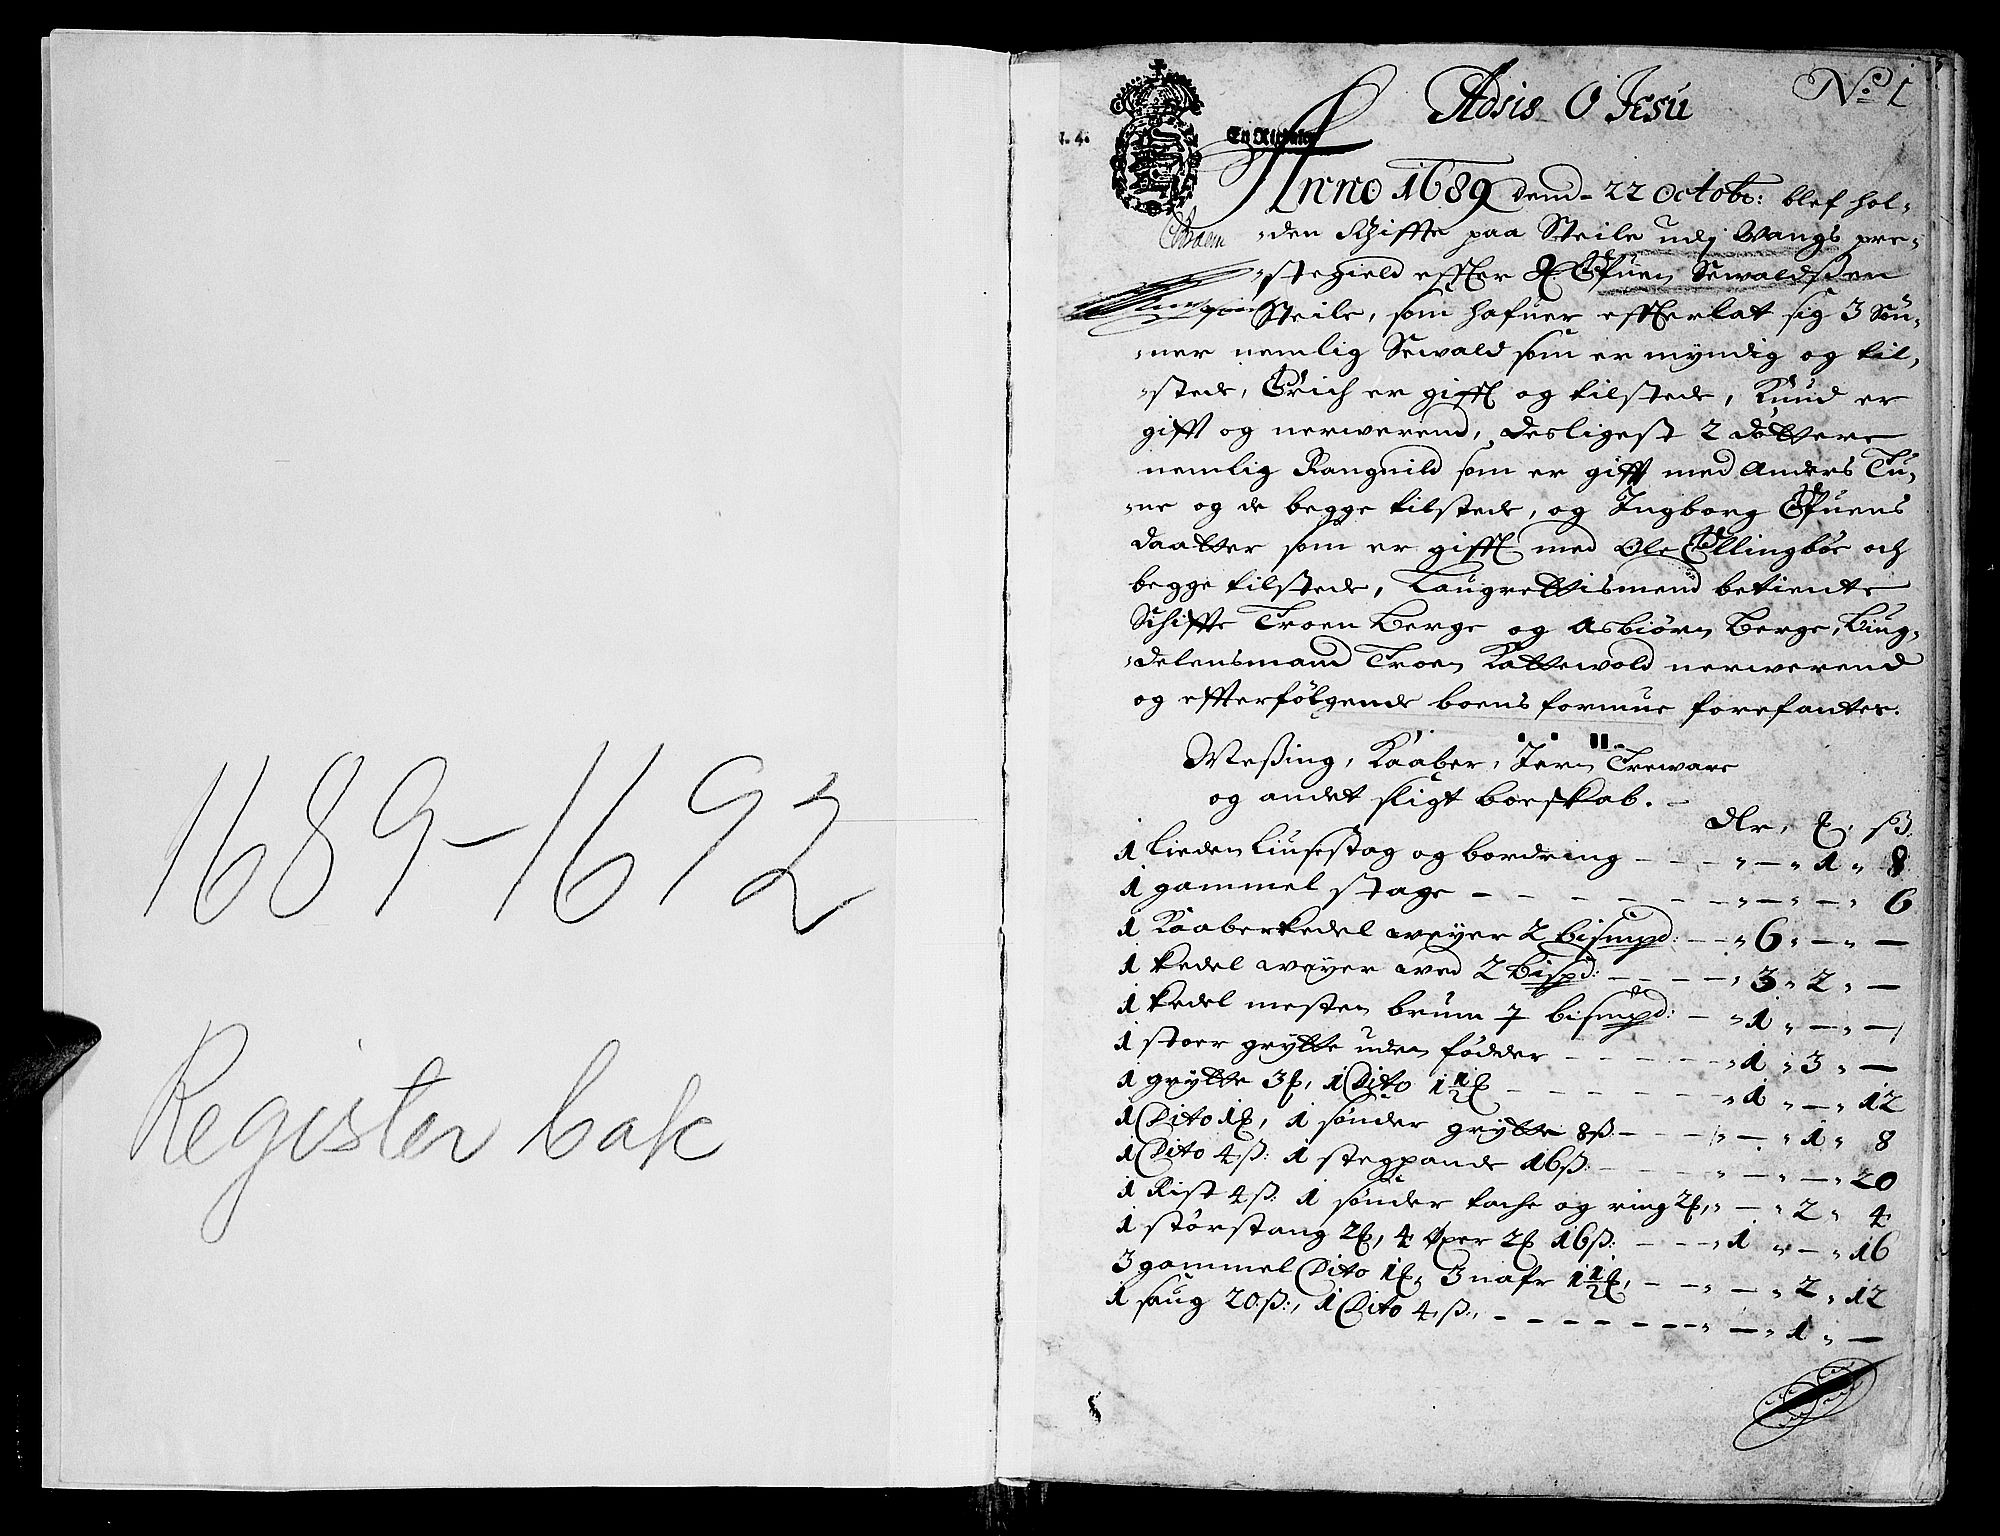 1689-1692
Register bak
No 1
Adsis O Jesu
Anno 1689 dend 22 Octobr: blef hol-
-den Schiffte paa Steile udj Wangs pre-
-stegield effter Sewaldßen
Steile, som hafuer effterlat sig 3 Søn-
-ner nemlig Sewald som er myndig og til-
-stede, Erich er gifft og tilstede, Knud er
gifft og nerwerend, desligest 2 døttere
nemlig Rangnild som er gifft med Anders Tu-
-ne og de begge tilstede, og Ingborg
daatter som er gifft med Ole Ellingbøe och
begge tilstede, Laugrettismend betiente
Schiffte Troen Berge og Asbiørn Berge, Bûug-
-delensmand Troen Kattewold nerwerend
og effterfølgende boens formue forefantes.
Meßing, Kaaber, Jern Treware
og andet sligt boeskab.
dlr, ꝑ, ß:
1 Lieden Liusestag og bordring - - - „ - „ 1 „ 8
1 gammel stage - - - - - - „ - „ - „ 6
1 Kaaberkedel weyer 2 bismpd: - - „ 6 „ - „ -
1 kedel weyer wed 2 bispd: - - - - „ 3 „ 2 „ -
1 kedel mesten brum 7 bismpd: - „ 1 „ - „ -
1 stoer grytte uden fødder - - - - „ 1 „ 3 „ -
1 grytte 3ꝑ, 1 Dito 1½ꝑ - - - - - „ 1 „ - „ 12
1 Dito 1ꝑ, 1 sønder grytte 8ß - - - „ - „ 1 „ 8
1 Dito 4ß: 1 stegpande 16ß: - - - „ - „ - „ 20
1 Rist 4ß: 1 sønder kache og ring 2ꝑ, „ - „ 2 „ 4
1 størstang 2ꝑ, 4 øxer 2ꝑ 16ß: - - - „ 1 „ - „ 16
3 gammel Dito 1ꝑ, 3 nafr 1½ꝑ, - - „ - „ 2 „ 12
1 saug 20ß:, 1 Dito 4ß:, - - - - - - „ - „ 1 „ -